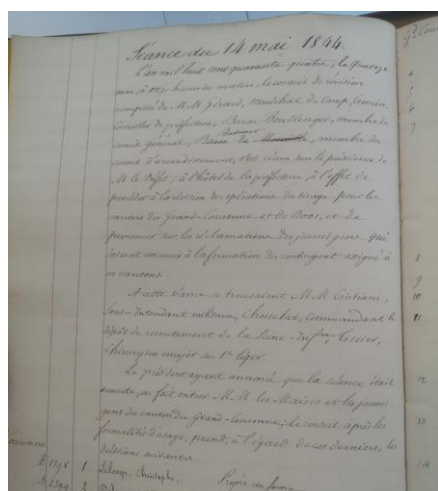 Séance du 14 mai 1844.
L'an mil huit cent quarante quatre, le quatorze
mai à onze heures du matin, le conseil de révision
composé de M.M. Gérard, maréchal de camp,
conseiller de préfecture, Baron Boullenger, membre du
conseil général, de membre du
conseil d'arrondissement, s'est réuni sous la présidence de
M. le Préfet, à l'hôtel de la préfecture, à l'effet de
procéder à la révision des opérations du tirage pour les
cantons du Grand-Couronne et de Boos, et de
prononcer sur les réclamations des jeunes gens qui
seront appelés à la formation du contingent assigné à
ces cantons.
A cette séance se trouvaient M.M. Cristiani,
Sous-Intendant militaire, commandant le
dépôt de recrutement de la Seine-Infre, Tessier,
Chirurgien major au 1er léger.
Le président ayant annoncé que la séance était
ouverte, on fait entrer M.M. les Maires et les jeunes
gens du canton du Grand-Couronne; le conseil après les
formalités d'usage, prend, à l'égard de ces derniers, les
décisions suivantes.
1398 1 Leloup, Propre au service
1399 2
8
9
10
11
12
13
14